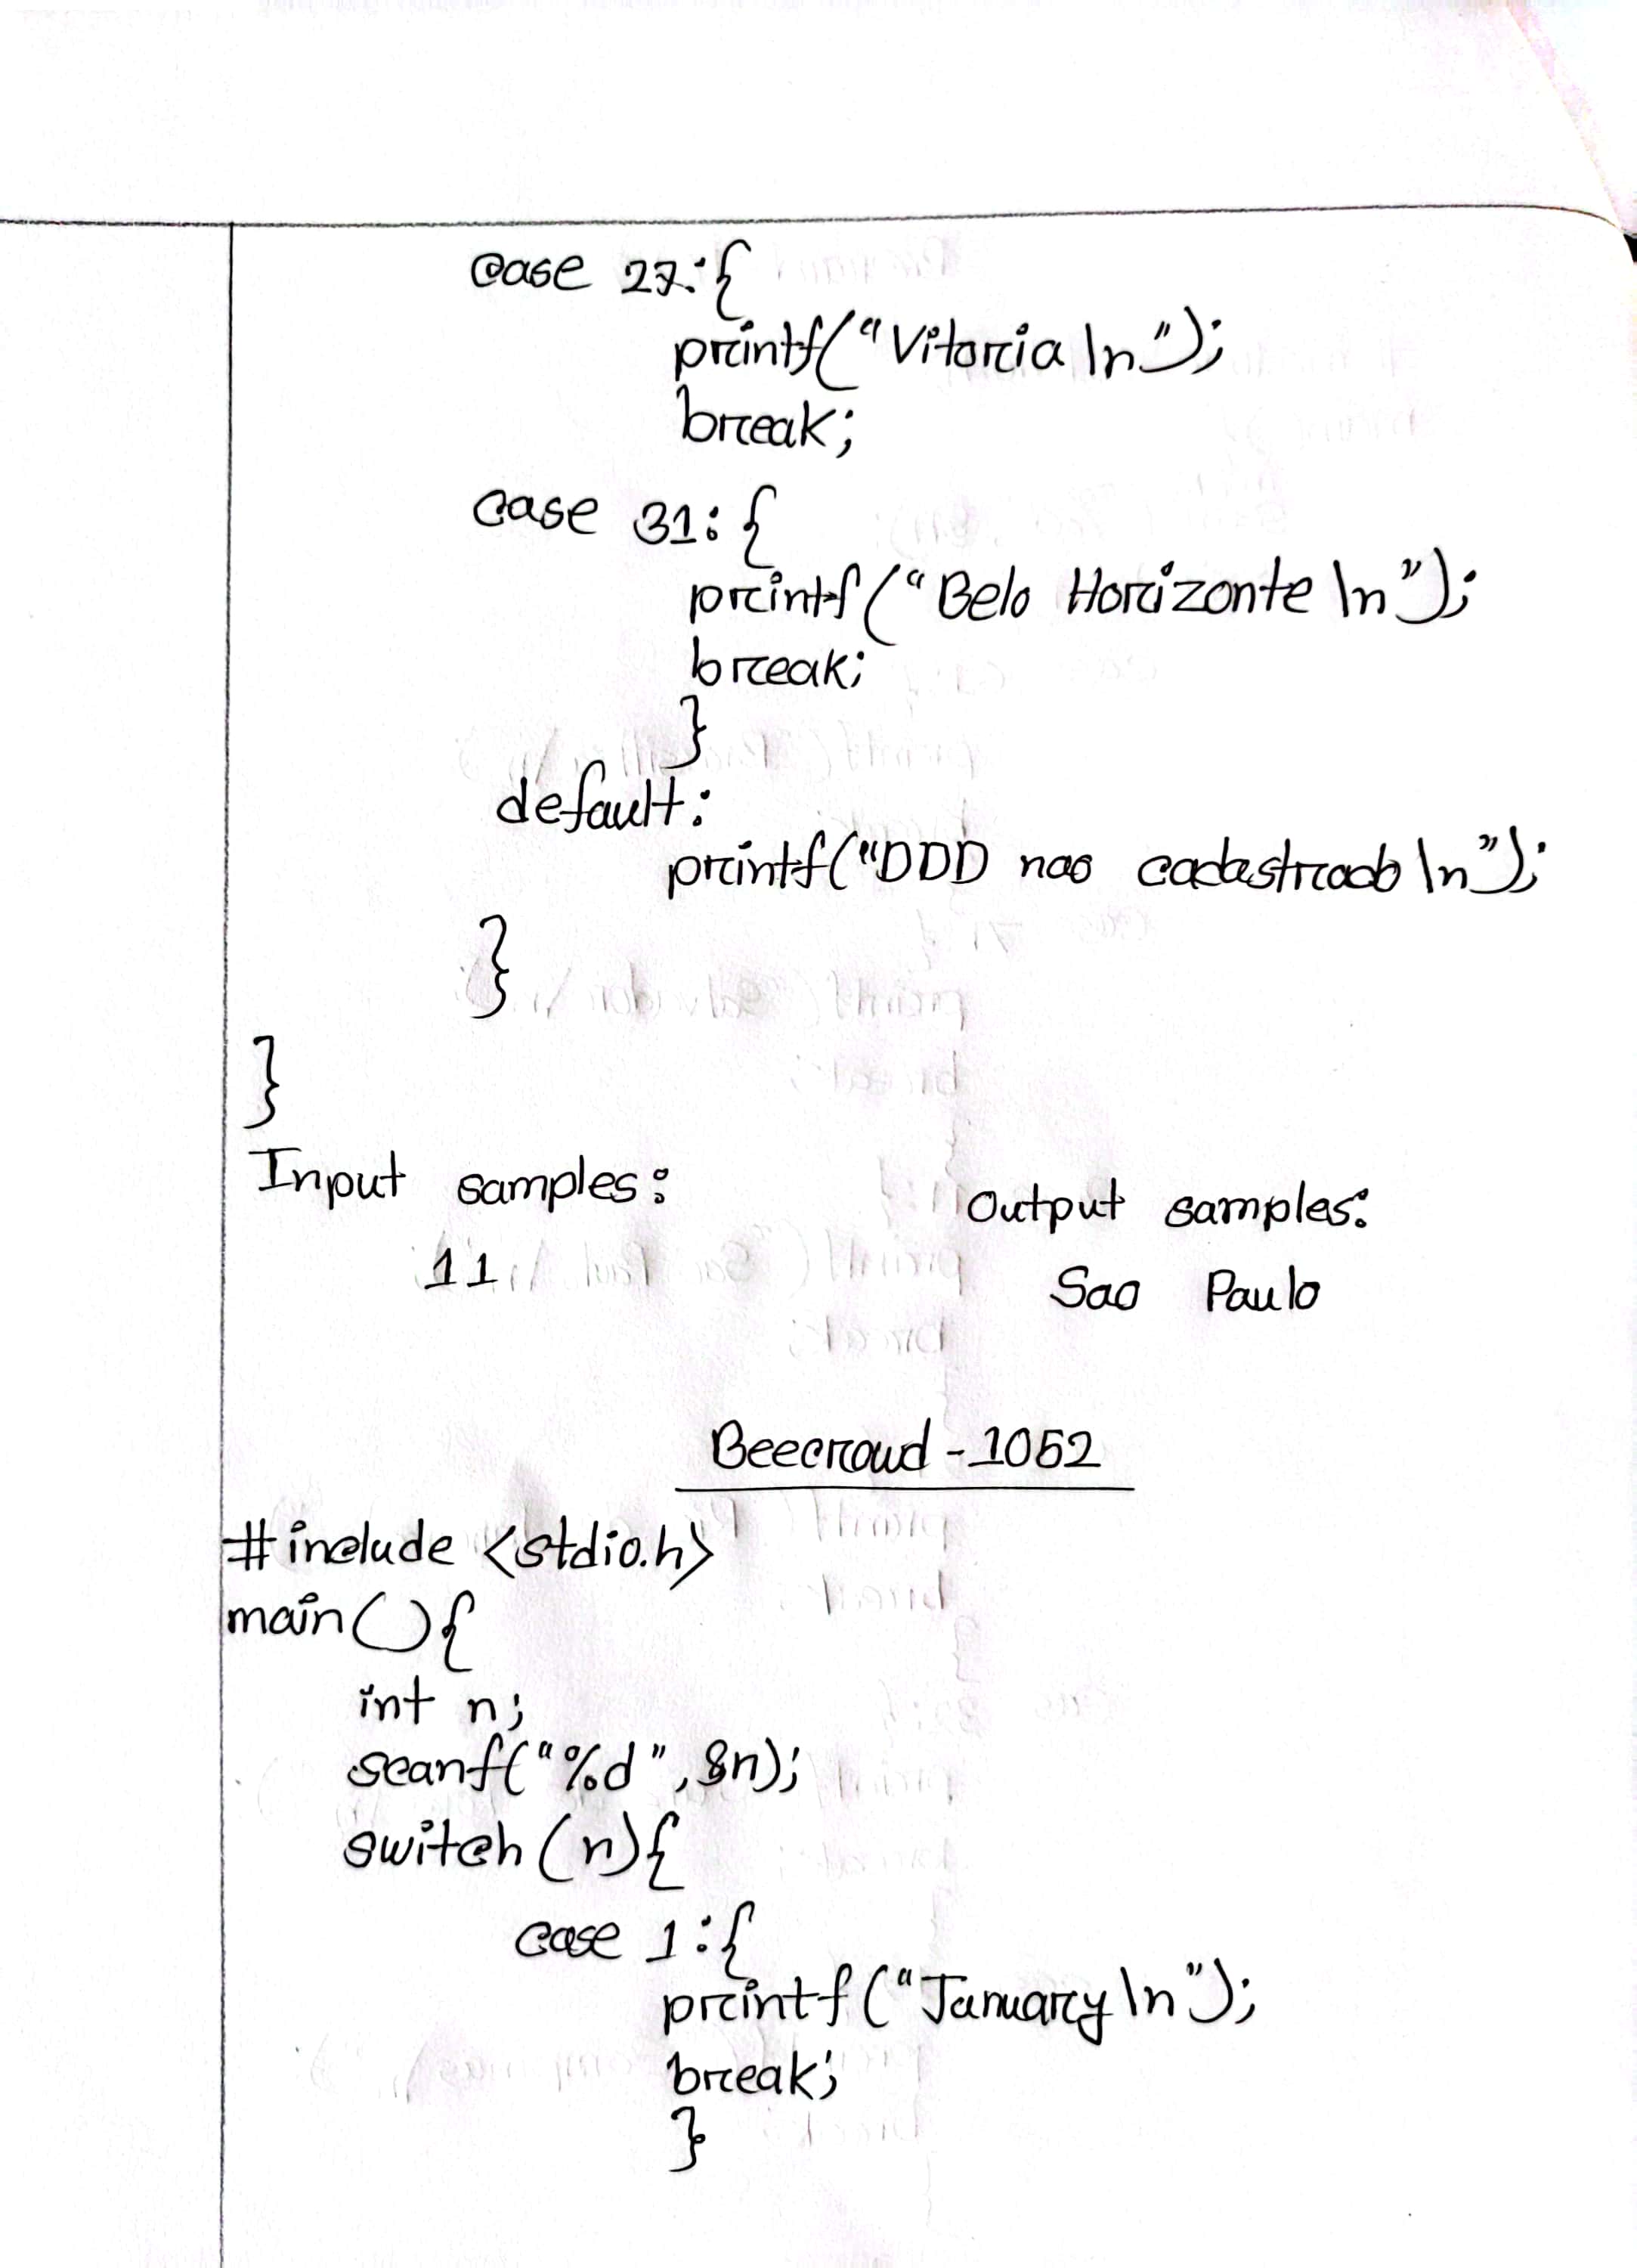 case 27:{
printf("Vitoria \n");
break;
case 31:{
printf("Belo Horizonte \n");
break;
}
default:
printf("DDD nao cadastrado \n");
}
}
Input samples:
11
Output samples:
Sao Paulo
Beecroud - 1052
#include <stdio.h>
main(){
int n;
scanf("%d", &n);
switch (n){
case 1:{
printf("January \n");
break;
}